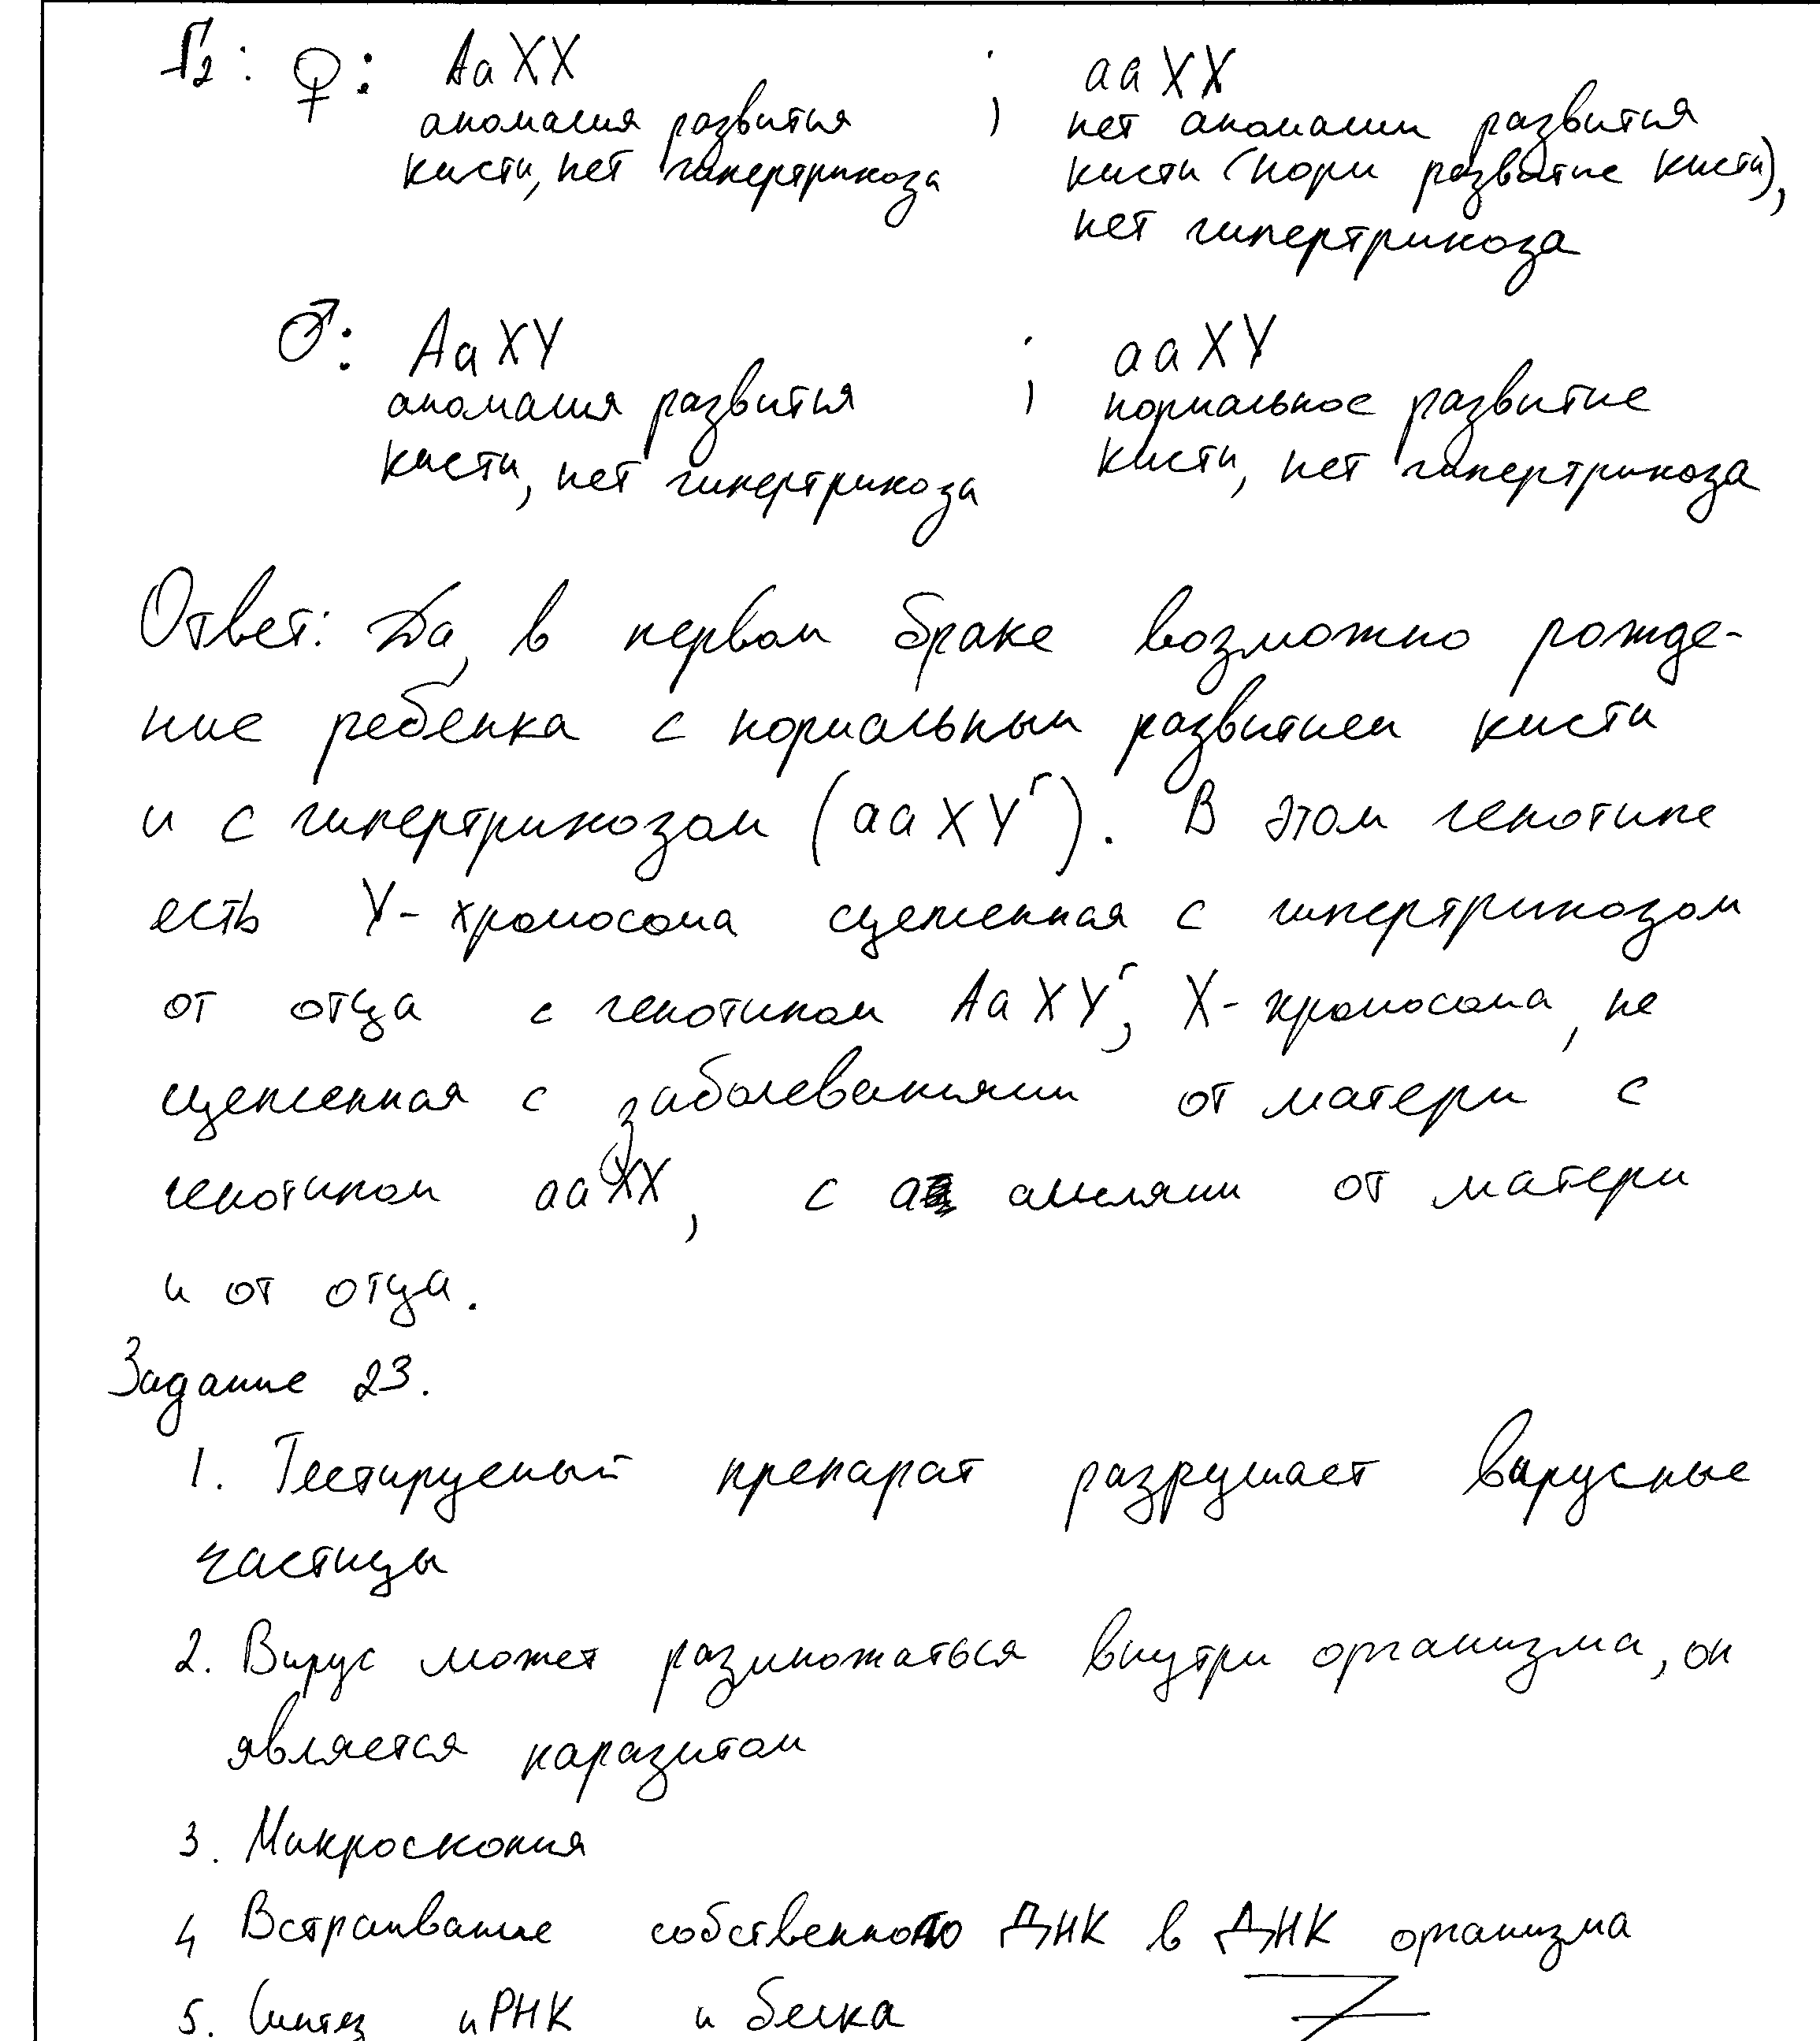 F₂: ♀: АаХХ ; ааХХ
аномалия развития нет аномалии развития
кисти, нет гипертрихоза кисти (норм развитие кисти),
нет гипертрихоза
♂: АаХY ; ааХY
аномалия развития нормальное развитие
кисти, нет гипертрихоза кисти, нет гипертрихоза
Ответ: Да, в первом браке возможно рожде-
ние ребенка с нормальным развитием кисти
и с гипертрихозом (ааХYʳ). В этом генотипе
есть Y-хромосома сцепленная с гипертрихозом
от отца с генотипом АаХYʳ, Х-хромосома, не
сцепленная с заболеваниями от матери с
генотипом ааХХ, с а аллелями от матери
и от отца.
Задание 23.
1. Тестируемый препарат разрушает вирусные
частицы
2. Вирус может размножаться внутри организма, он
является паразитом
3. Микроскопия
4 Встраивание собственного ДНК в ДНК организма
5. Синтез иРНК и белка Z